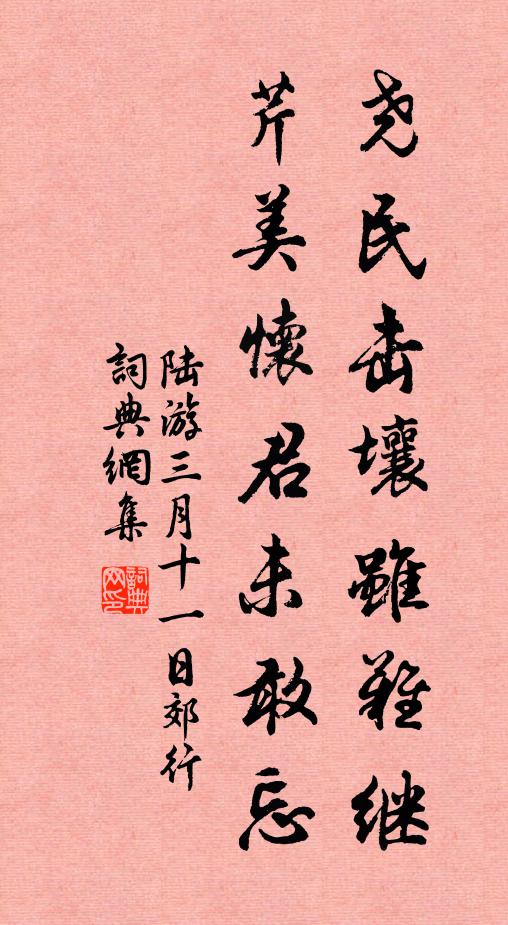 尧民击壤雖难继
芹美懷君未敢忘
陆游三月十一日郊行
詞典網集
詞典网印